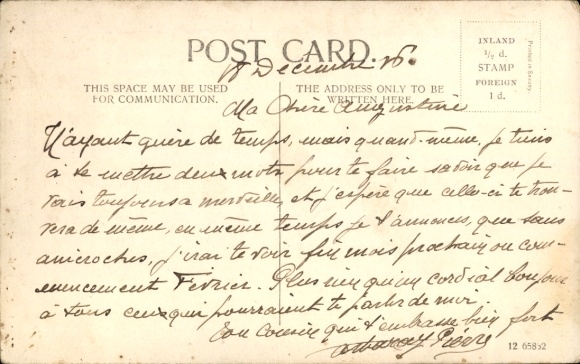 POST CARD.
INLAND
½ d.
STAMP
FOREIGN
1 d.
Printed in Saxony.
THIS SPACE MAY BE USED
FOR COMMUNICATION.
THE ADDRESS ONLY TO BE
WRITTEN HERE.
18 Décembre
Ma Chère Augustine
N'ayant guère de temps, mais quand-même, je tiens
à te mettre deux mots pour te faire savoir que je
vais toujours à merveille, et j'espère que celle-ci te trou-
vera de même, en même temps je t'annonce, que sans
anicroches, j'irai te voir fin mois prochain ou com-
mencement Février. Plus rien qu'un cordial bonjour
à tous ceux qui pourraient te parler de moi.
Ton cousin qui t'embrasse bien fort
12 65852